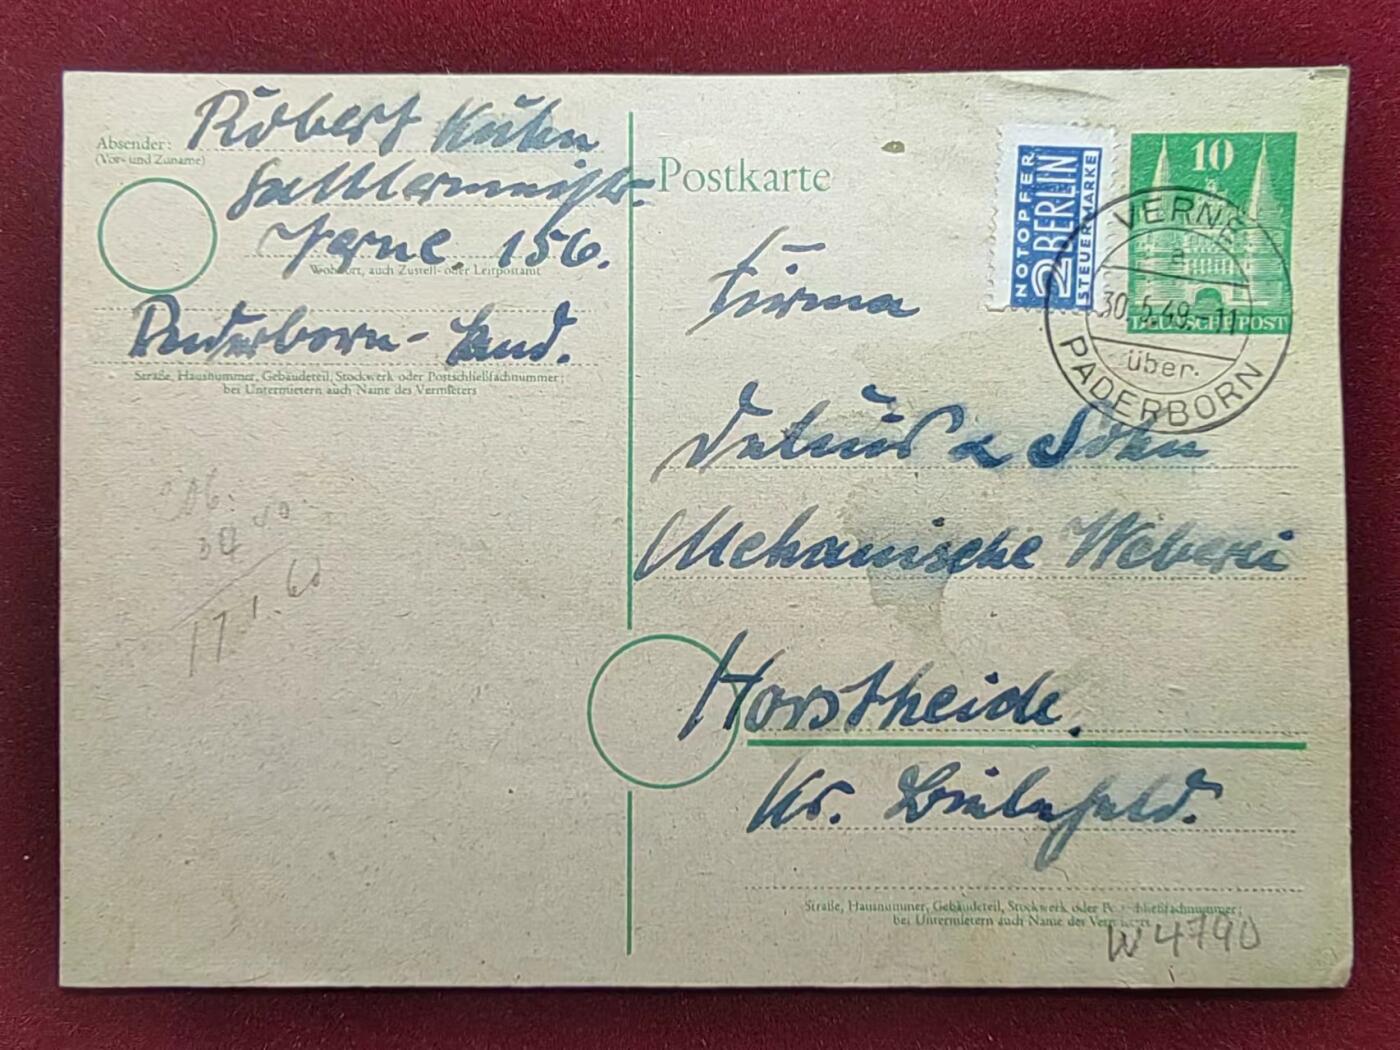 Absender:
(Vor- und Zuname)
Robert Kühn
Sattlermeister
Verne. 156.
Wohnort, auch Zustell- oder Leitpostamt
Paderborn-Land.
Straße, Hausnummer, Gebäudeteil, Stockwerk oder Postschließfachnummer;
bei Untermietern auch Name des Vermieters
17.1.60
Postkarte
NOTOPFER
2 BERLIN
STEUERMARKE
10
DEUTSCHE POST
VERNE
a
30.5.49.-11
über.
PADERBORN
Firma
Delius & Söhn
Mechanische Weberei
Horstheide.
Kr. Bielefeld.
Straße, Hausnummer, Gebäudeteil, Stockwerk oder Postschließfachnummer;
bei Untermietern auch Name des Vermieters
W 4790